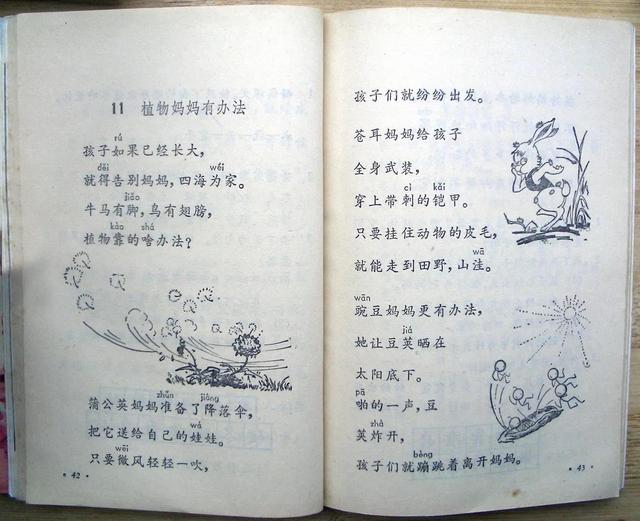 11 植物妈妈有办法
rú
孩子如果已经长大，
děi wéi
就得告别妈妈，四海为家。
jiǎo
牛马有脚，鸟有翅膀，
kào shá
植物靠的啥办法？
zhǔn jiàng
蒲公英妈妈准备了降落伞，
wá
把它送给自己的娃娃。
wēi
只要微风轻轻一吹，
·42·
孩子们就纷纷出发。
苍耳妈妈给孩子
全身武装，
cì kǎi
穿上带刺的铠甲。
只要挂住动物的皮毛，
wā
就能走到田野，山洼。
wān
豌豆妈妈更有办法，
jiá
她让豆荚晒在
太阳底下。
pā
啪的一声，豆
zhà
荚炸开，
bèng
孩子们就蹦跳着离开妈妈。
·43·